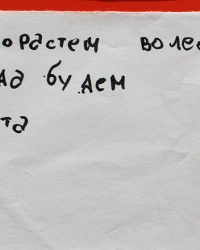 орастем воле
да будем
та